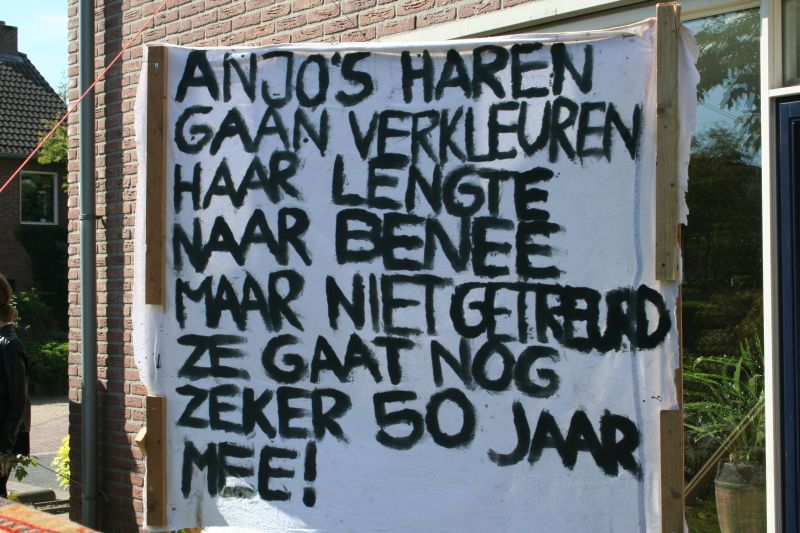 ANJO'S HAREN
GAAN VERKLEUREN
HAAR LENGTE
NAAR BENEE
MAAR NIET GETREURD
ZE GAAT NOG
ZEKER 50 JAAR
MEE!